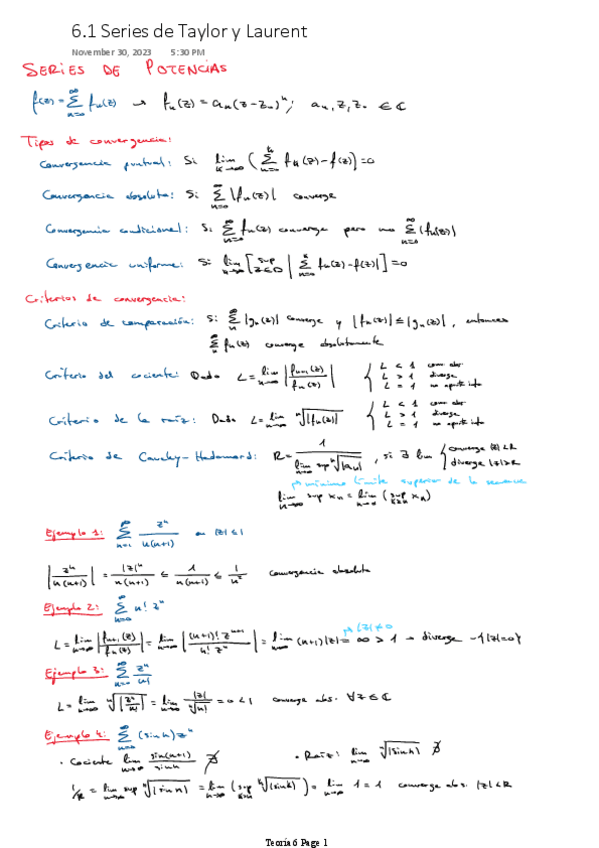 6.1 Series de Taylor y Laurent
November 30, 2023 5:30 PM
SERIES DE POTENCIAS
f(z) = ∑_{n=0}^{∞} fₙ(z) → fₙ(z) = aₙ(z-z₀)ⁿ; aₙ, z, z₀ ∈ ℂ
Tipos de convergencia:
Convergencia puntual: Si lim_{k→∞} (∑_{n=0}^{k} fₙ(z) - f(z)) = 0
Convergencia absoluta: Si ∑_{n=0}^{∞} |fₙ(z)| converge
Convergencia condicional: Si ∑_{n=0}^{∞} fₙ(z) converge pero no ∑_{n=0}^{∞} |fₙ(z)|
Convergencia uniforme: Si lim [sup_{z∈D} |∑_{n=0} fₙ(z) - f(z)|] = 0
Criterios de convergencia:
Criterio de comparación: Si ∑ |gₙ(z)| converge y |fₙ(z)| ≤ |gₙ(z)|, entonces
∑ fₙ(z) converge absolutamente
Criterio del cociente: Dado L = lim_{n→∞} |fₙ₊₁(z)/fₙ(z)| { L < 1 conv. abs.
L > 1 diverge
L = 1 no aporta inf.
Criterio de la raíz: Dado L = lim_{n→∞} ⁿ√|fₙ(z)| { L < 1 conv. abs.
L > 1 diverge
L = 1 no aporta inf.
Criterio de Cauchy-Hadamard: R = 1/(lim_{n→∞} sup ⁿ√|aₙ|), si ∃ lim { converge |z| < R
diverge |z| > R
mínimo límite superior de la
lim_{n→∞} sup xₙ = lim_{n→∞} (sup xₙ)
Ejemplo 1: ∑_{n=1}^{∞} zⁿ/n(n+1) |z| ≤ 1
|zⁿ/n(n+1)| = |z|ⁿ/n(n+1) ≤ 1/n(n+1) ≤ 1/n² convergencia absoluta
Ejemplo 2: ∑_{n=0}^{∞} n! zⁿ
|z| ≠ 0
L = lim_{n→∞} |fₙ₊₁(z)/fₙ(z)| = lim_{n→∞} |(n+1)! zⁿ⁺¹/n! zⁿ| = lim_{n→∞} (n+1)|z| = ∞ > 1 → diverge -{|z|=0}
Ejemplo 3: ∑_{n=0}^{∞} zⁿ/n!
L = lim_{n→∞} ⁿ√|zⁿ/n!| = lim_{n→∞} |z|/ⁿ√n! = 0 < 1 converge abs. ∀z∈ℂ
Ejemplo 4: ∑_{n=0}^{∞} (sin n) zⁿ
· Cociente lim_{n→∞} sin(n+1)/sin n ∄ · Raíz: lim_{n→∞} ⁿ√|sin n| ∄
1/R = lim_{n→∞} sup ⁿ√|sin n| = lim_{n→∞} (sup ⁿ√|sin k|) = lim_{n→∞} 1 = 1 converge abs. |z| < R
Teoría 6 Page 1